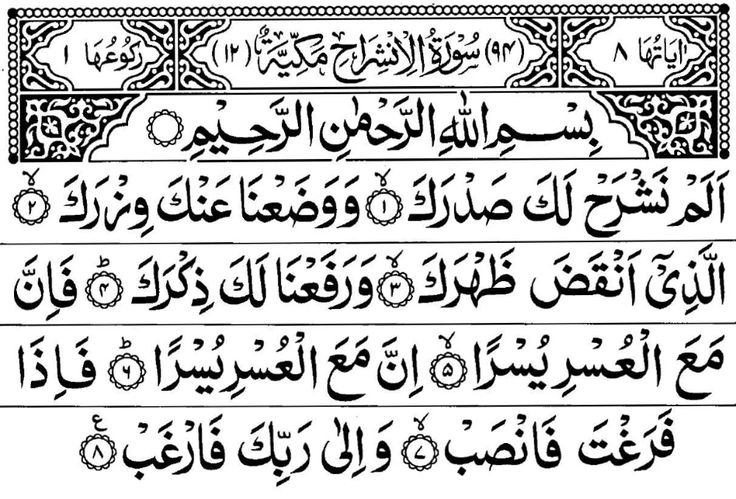 اٰیَاتُهَا ۸ (۹۴) سُوْرَةُ الْاِنْشِرَاحِ مَكِّيَّةٌ (۱۲) رُكُوْعُهَا ۱
بِسْمِ اللّٰهِ الرَّحْمٰنِ الرَّحِيْمِ
اَلَمْ نَشْرَحْ لَكَ صَدْرَكَ ۙ﴿۱﴾ وَوَضَعْنَا عَنْكَ وِزْرَكَ ۙ﴿۲﴾
الَّذِيْٓ اَنْقَضَ ظَهْرَكَ ۙ﴿۳﴾ وَرَفَعْنَا لَكَ ذِكْرَكَ ؕ﴿۴﴾ فَاِنَّ
مَعَ الْعُسْرِ يُسْرًا ۙ﴿۵﴾ اِنَّ مَعَ الْعُسْرِ يُسْرًا ؕ﴿۶﴾ فَاِذَا
فَرَغْتَ فَانْصَبْ ۙ﴿۷﴾ وَاِلٰى رَبِّكَ فَارْغَبْ ﴿۸﴾ ع